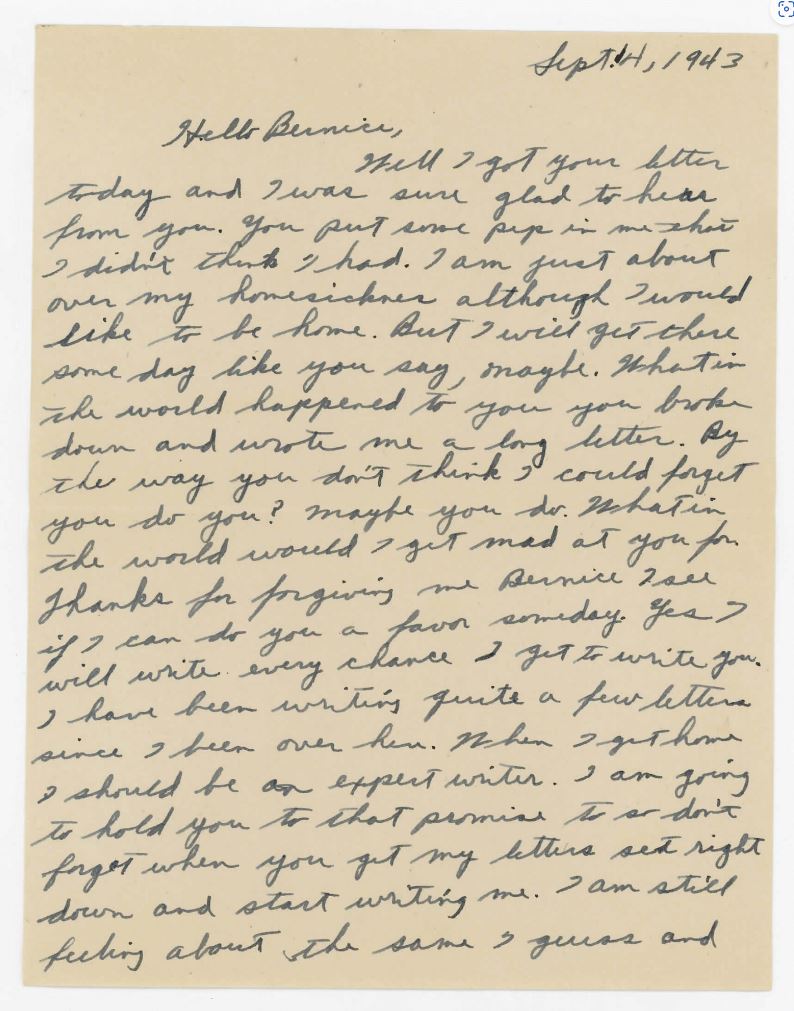 Sept. 14, 1943
Hello Bernice,
Well I got your letter
today and I was sure glad to hear
from you. You put some pep in me that
I didn't think I had. I am just about
over my homesickness although I would
like to be home. But I will get there
some day like you say, maybe. What in
the world happened to you you broke
down and wrote me a long letter. By
the way you don't think I could forget
you do you? Maybe you do. What in
the world would I get mad at you for.
Thanks for forgiving me Bernice I see
if I can do you a favor someday. Yes I
will write every chance I get to write you.
I have been writing quite a few letters
since I been over here. When I get home
I should be an expert writer. I am going
to hold you to that promise to so don't
forget when you get my letters set right
down and start writing me. I am still
feeling about the same I guess and